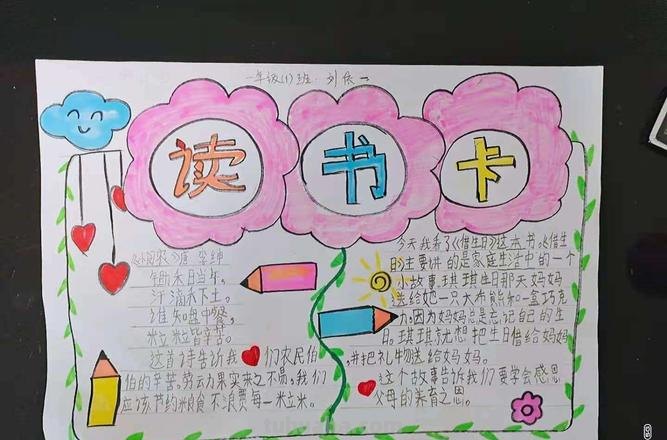 一年级(1)班:刘依一
读书卡
《小悯农》唐 李绅
锄禾日当午。
汗滴禾下土。
谁知盘中餐,
粒粒皆辛苦。
这首诗告诉我们农民伯
伯的辛苦。劳动力果实来之不易。我们
应该节约粮食不浪费每一粒米。
今天我看了《借生日》这本书。《借生
日》主要讲的是家庭生活中的一个
小故事。琪琪生日那天妈妈
送给她一只大布熊和一盒巧克
力。因为妈妈总是忘记自己的生
日。琪琪就想把生日借给妈妈
,并把礼物送给妈妈。
这个故事告诉我们要学会感恩
父母的养育之恩。